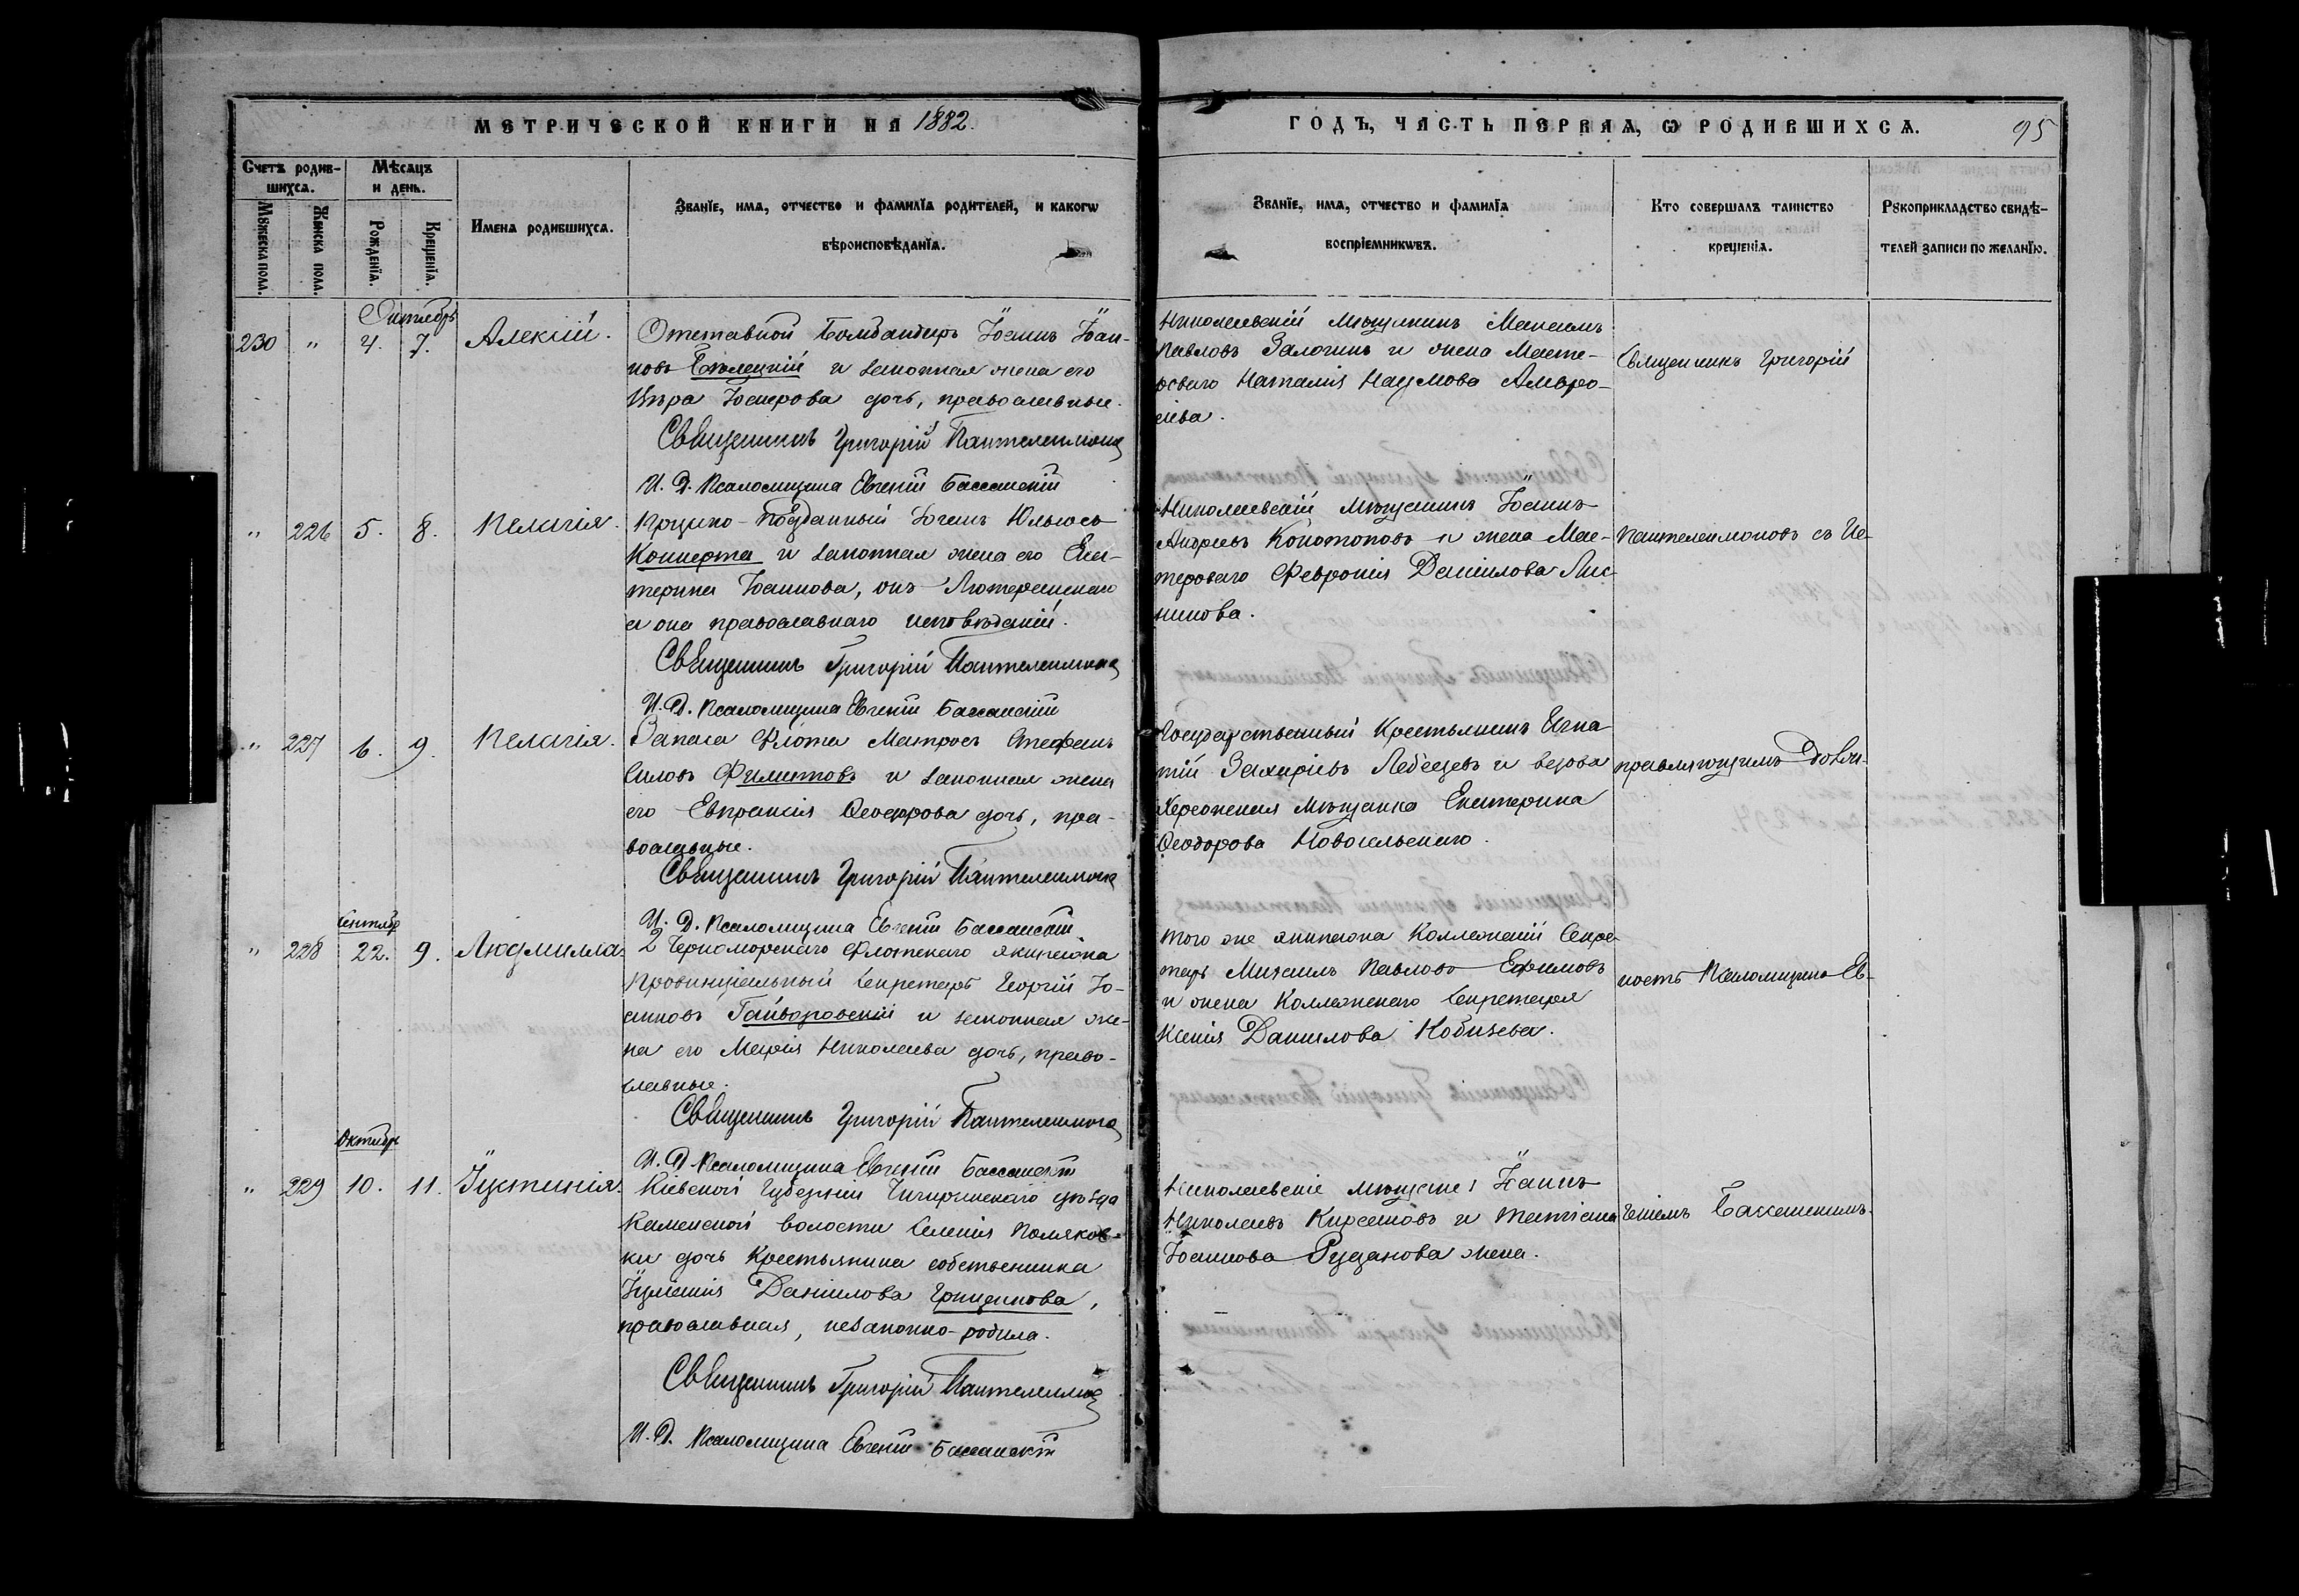 МЕТРИЧЕСКОЙ КНИГИ НА 1882.
ГОДЪ, ЧАСТЬ ПЕРВАЯ, Ѡ РОДИВШИХСѦ.
95
Счетъ родив-
шихсѧ.
Мѣсѧцъ
и день.
Имена родившихсѧ.
Званїе, имѧ, отчество и фамилїѧ родителей, и какогѡ
вѣроисповѣданїѧ.
Званїе, имѧ, отчество и фамилїѧ
воспрїемникѡвъ.
Кто совершалъ таинство
крещенїѧ.
Рѹкоприкладство свидѣ-
телей записи по желанїю.
Мѹжеска пола.
Женска пола.
Рожденїѧ.
Крещенїѧ.
Октябрь
230 " 4. 7. Алексій.
Отставной Бомбандиръ Іоаннъ Іоан-
новъ Бѣлецкій и законная жена его
Вѣра дочь, православные.
Священникъ Григорій Пантелеимоновъ
И. Д. Псаломщика Евгеній Бассанскій
Николаевскій Мѣщанинъ Максимъ
Павловъ Залогинъ и жена Масте-
роваго Наталія Наумова Амвро-
сіева.
Священникъ Григорій
" 226 5. 8. Пелагія.
Прусско-Подданный Юльюсъ
и законная жена его Ека-
терина Іоаннова, онъ Лютеранскаго
а она православнаго исповѣданій.
Священникъ Григорій Пантелеимоновъ
И. Д. Псаломщика Евгеній Бассанскій
Николаевскій Мѣщанинъ Іоаннъ
Андреевъ Конотоповъ и жена Мас-
тероваго Февронія Даніилова Лис-
никова.
Пантелеимоновъ съ Ис-
" 227 6. 9. Пелагія.
Запаса Флота Матросъ Стефанъ
Силовъ Филистовъ и законная жена
его Евпраксія Ѳеодорова дочь, пра-
вославные.
Священникъ Григорій Пантелеимоновъ
И. Д. Псаломщика Евгеній Бассанскій
Государственный Крестьянинъ Игна-
тій Захаріевъ Лебедевъ и вдова
Херсонская Мѣщанка Екатерина
Ѳеодорова Новосельскаго.
правляющимъ Долж-
Сентябр
" 228 22. 9. Людмилла.
2 Черноморскаго Флотскаго экипажа
Провинціальный Секретарь Георгій Іо-
анновъ Гайворовскій и законная же-
на его Марія Николаева дочь, право-
славные.
Священникъ Григорій Пантелеимоновъ
И. Д. Псаломщика Евгеній Бассанскій
Того же экипажа Коллежскій Секре-
тарь Михаилъ Павловъ Ефимовъ
и жена Коллежскаго Секретаря
Ксенія Данилова Кобизева.
ность Псаломщика Ев-
Октябр
" 229 10. 11. Іустинія.
Кіевской Губерніи Чигиринскаго уѣзда
Каменской волости Селенія Поляков-
ки дочь Крестьянина собственника
Іуліанія Даніилова Грищенкова,
православная, незаконно-родила.
Священникъ Григорій Пантелеимоновъ
И. Д. Псаломщика Евгеній Бассанскій
Николаевскіе мѣщане: Іоаннъ
Николаевъ Кирсановъ и Татіана
Іоаннова Рузанова жена.
геніемъ Бассанскимъ.